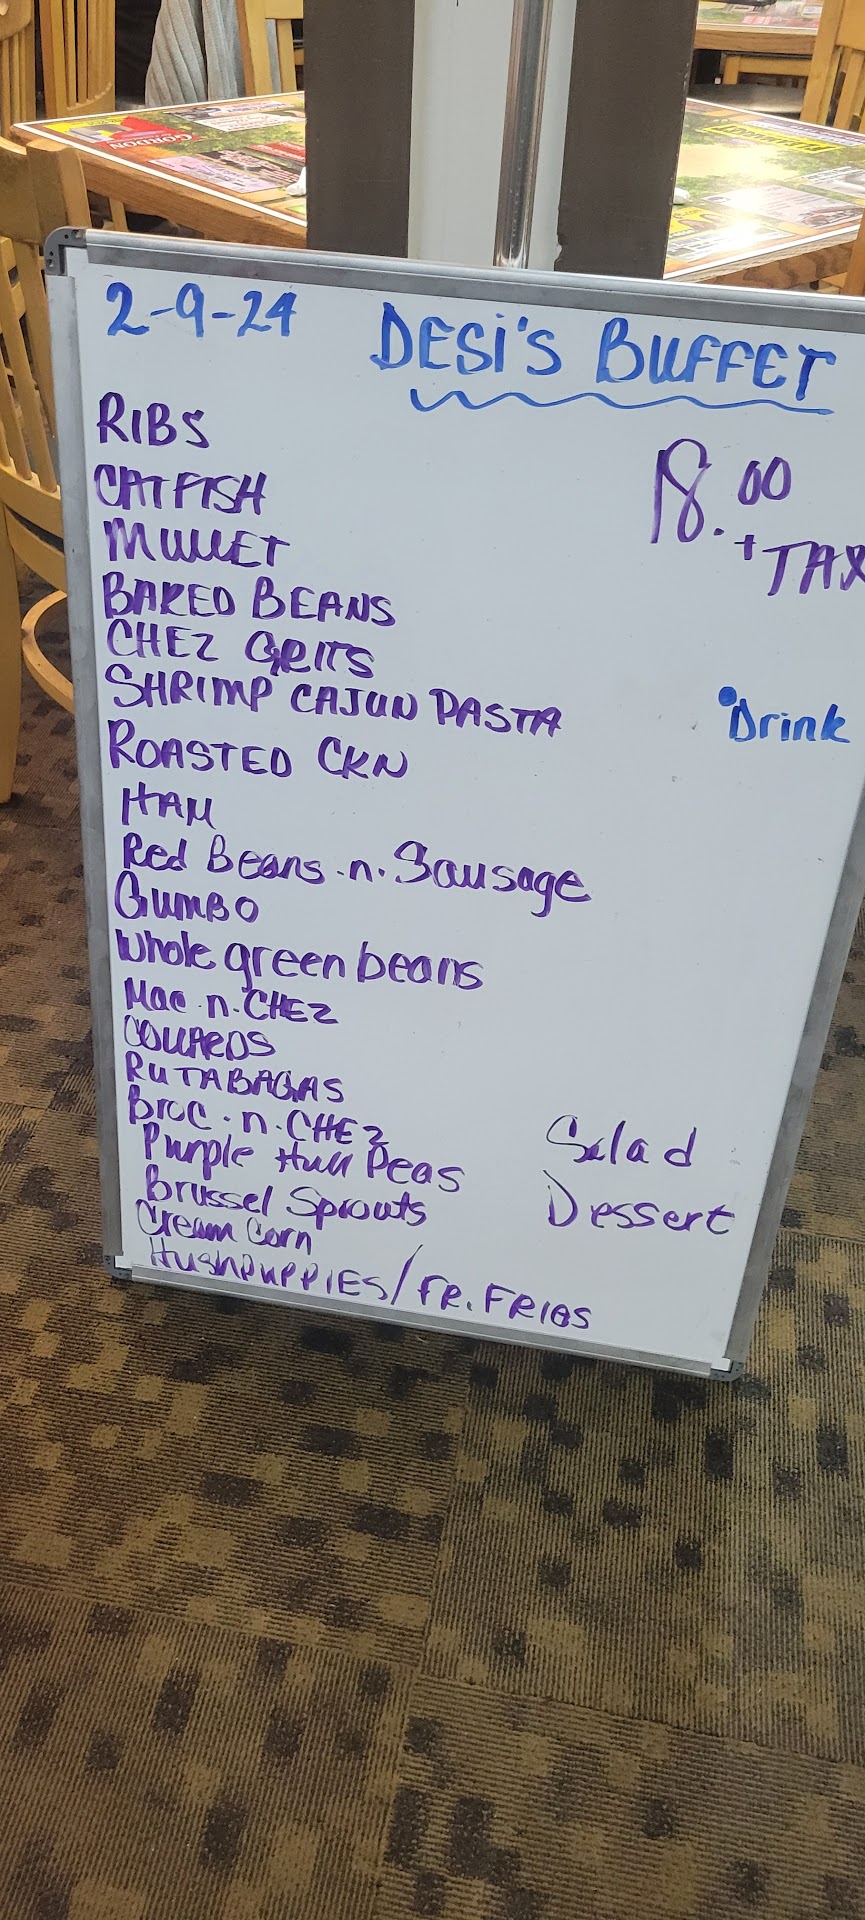 GORDON
2-9-24 DESI'S BUFFET
RIBS
18.00
CATFISH
+ TAX
MULLET
BAKED BEANS
CHEZ GRITS
SHRIMP CAJUN PASTA
•Drink
ROASTED CKN
HAM
Red Beans.n.Sausage
GUMBO
Whole green beans
Mac.n.CHEZ
COLLARDS
RUTABAGAS
Broc.n.CHEZ
Salad
Purple Hull Peas
Brussel Sprouts
Dessert
Cream Corn
HUSHPUPPIES/FR.FRIES